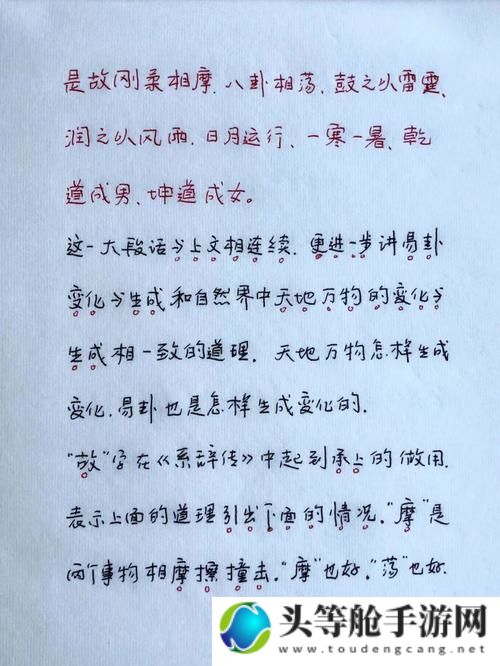 是故刚柔相摩、八卦相荡、鼓之以雷霆、
润之以风雨、日月运行、一寒一暑、乾
道成男、坤道成女。
这一大段话与上文相连续、更进一步讲易卦
变化与生成和自然界中天地万物的变化与
生成相一致的道理。天地万物怎样生成
变化、易卦也是怎样生成变化的、
“故”字在《系辞传》中起到承上的做用、
表示上面的道理引出下面的情况。“摩”是
两个事物相摩擦撞击。“摩”也好、“荡”也好、
头等舱手游网
www.toudengcang.net